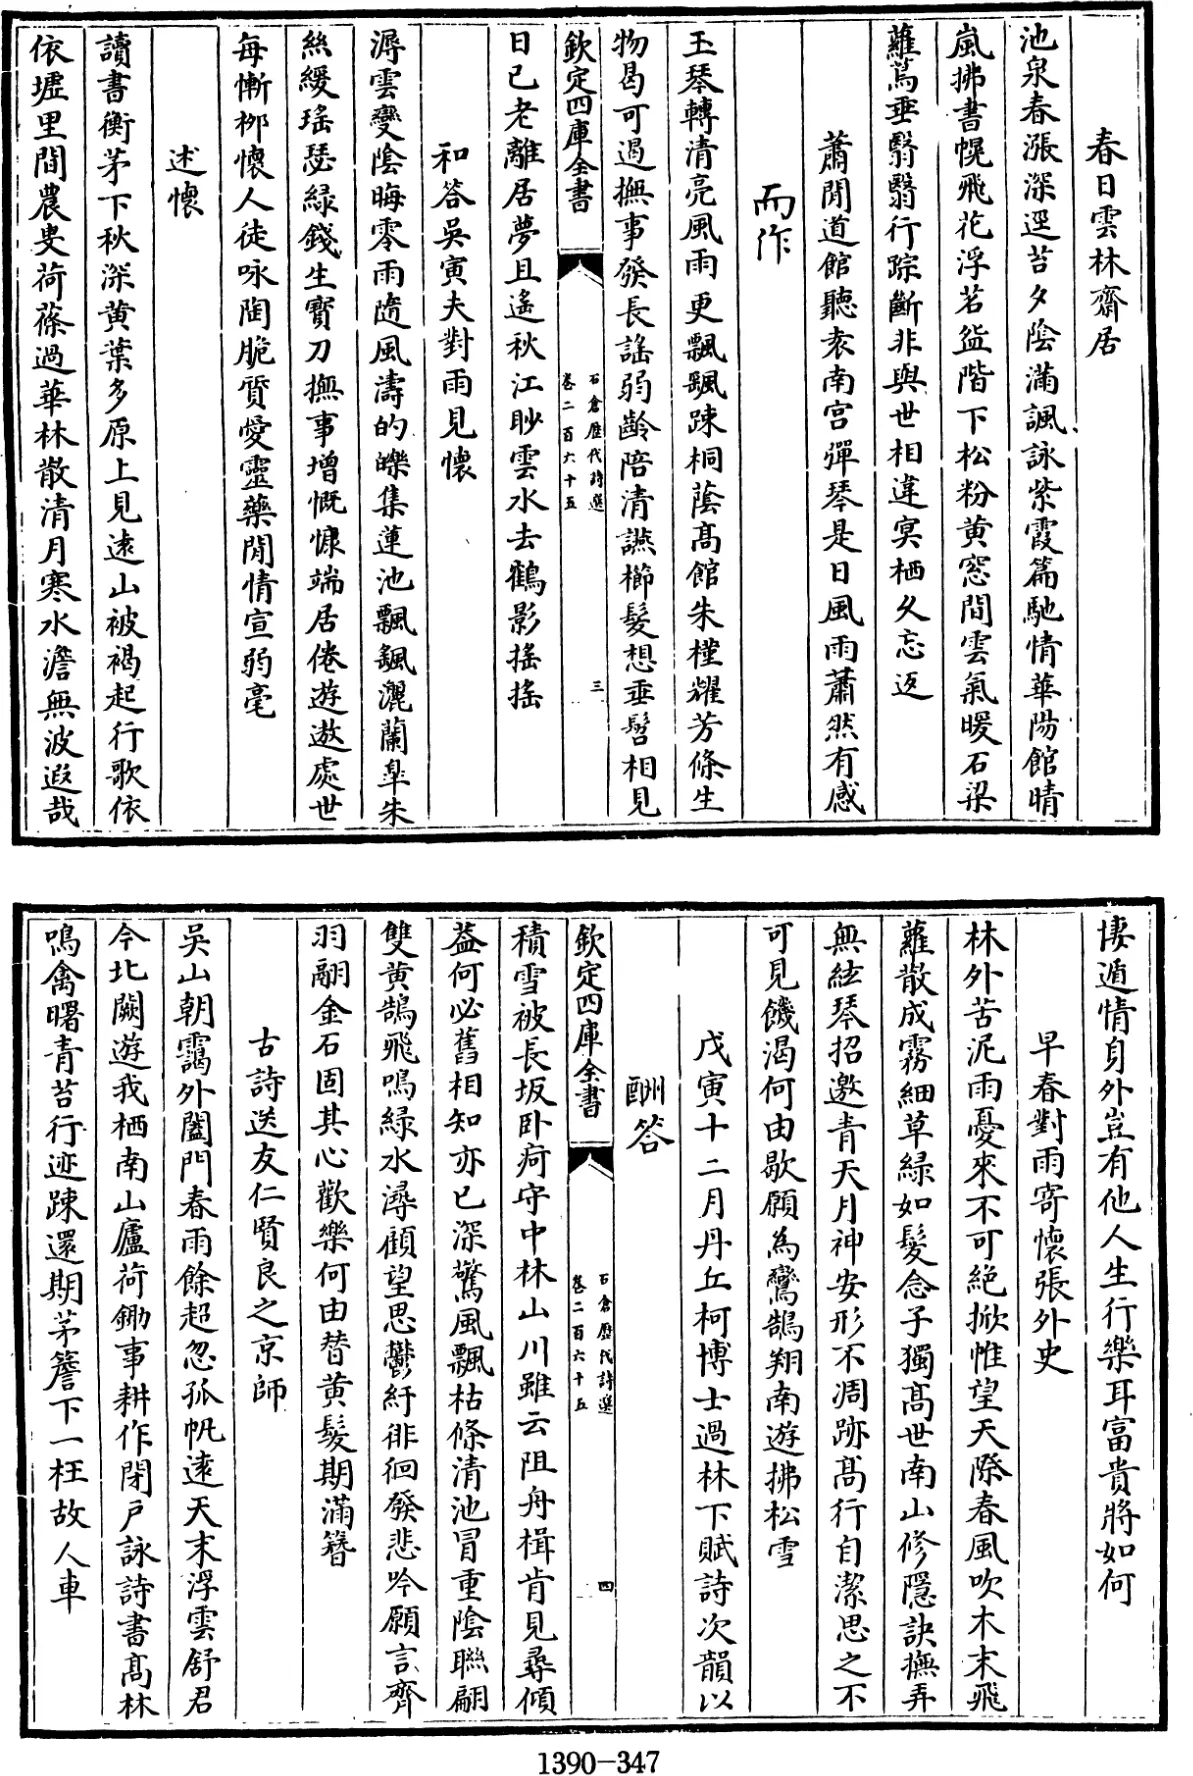 春日雲林齋居
池泉春漲深逕苔夕陰滿諷詠紫霞篇馳情華陽館晴
嵐拂書幌飛花浮茗盌階下松粉黄窓間雲氣暖石梁
蘿蔦垂翳翳行踪斷非與世相違冥栖久忘返
蕭閒道館聽袁南宫彈琴是日風雨蕭然有感
而作
玉琴轉清亮風雨更飄颻踈桐蔭髙館朱槿耀芳條生
物曷可遏撫事發長謡弱齡陪清讌櫛髮想垂髫相見
欽定四庫全書
石倉歴代詩選
卷二百六十五
三
日已老離居夢且遙秋江眇雲水去鶴影揺揺
和答吳寅夫對雨見懐
潯雲變陰晦零雨隨風濤的皪集蓮池飄颻灑蘭臯朱
絲緩瑤瑟緑錢生寳刀撫事增慨慷端居倦遊遨處世
每慚栁懐人徒咏陶脆質愛靈藥閒情宣弱毫
述懐
讀書衡茅下秋深黄葉多原上見逺山被褐起行歌依
依墟里間農叟荷蓧過華林散清月寒水澹無波遐哉
棲遁情身外豈有他人生行樂耳富貴將如何
早春對雨寄懐張外史
林外苦泥雨憂來不可絶掀帷望天際春風吹木末飛
蘿散成霧細草緑如髮念子獨髙世南山修隱訣撫弄
無絃琴招邀青天月神安形不凋跡髙行自潔思之不
可見饑渴何由歇願為鸞鵠翔南遊拂松雪
戊寅十二月丹丘柯博士過林下賦詩次韻以
酬答
欽定四庫全書
石倉歴代詩選
卷二百六十五
四
積雪被長坂卧疴守中林山川雖云阻舟楫肯見尋傾
葢何必舊相知亦已深驚風飄枯條清池冒重陰聮翩
雙黄鵠飛鳴緑水潯顧望思鬱紆徘徊發悲吟願言齊
羽翮金石固其心歡樂何由替黄髮期滿簪
古詩送友仁賢良之京師
吳山朝靄外闔門春雨餘超忽孤帆逺天末浮雲舒君
今北闕遊我栖南山廬荷鋤事耕作閉戸詠詩書髙林
鳴禽曙青苔行迹踈還期茅簷下一枉故人車
1390-347